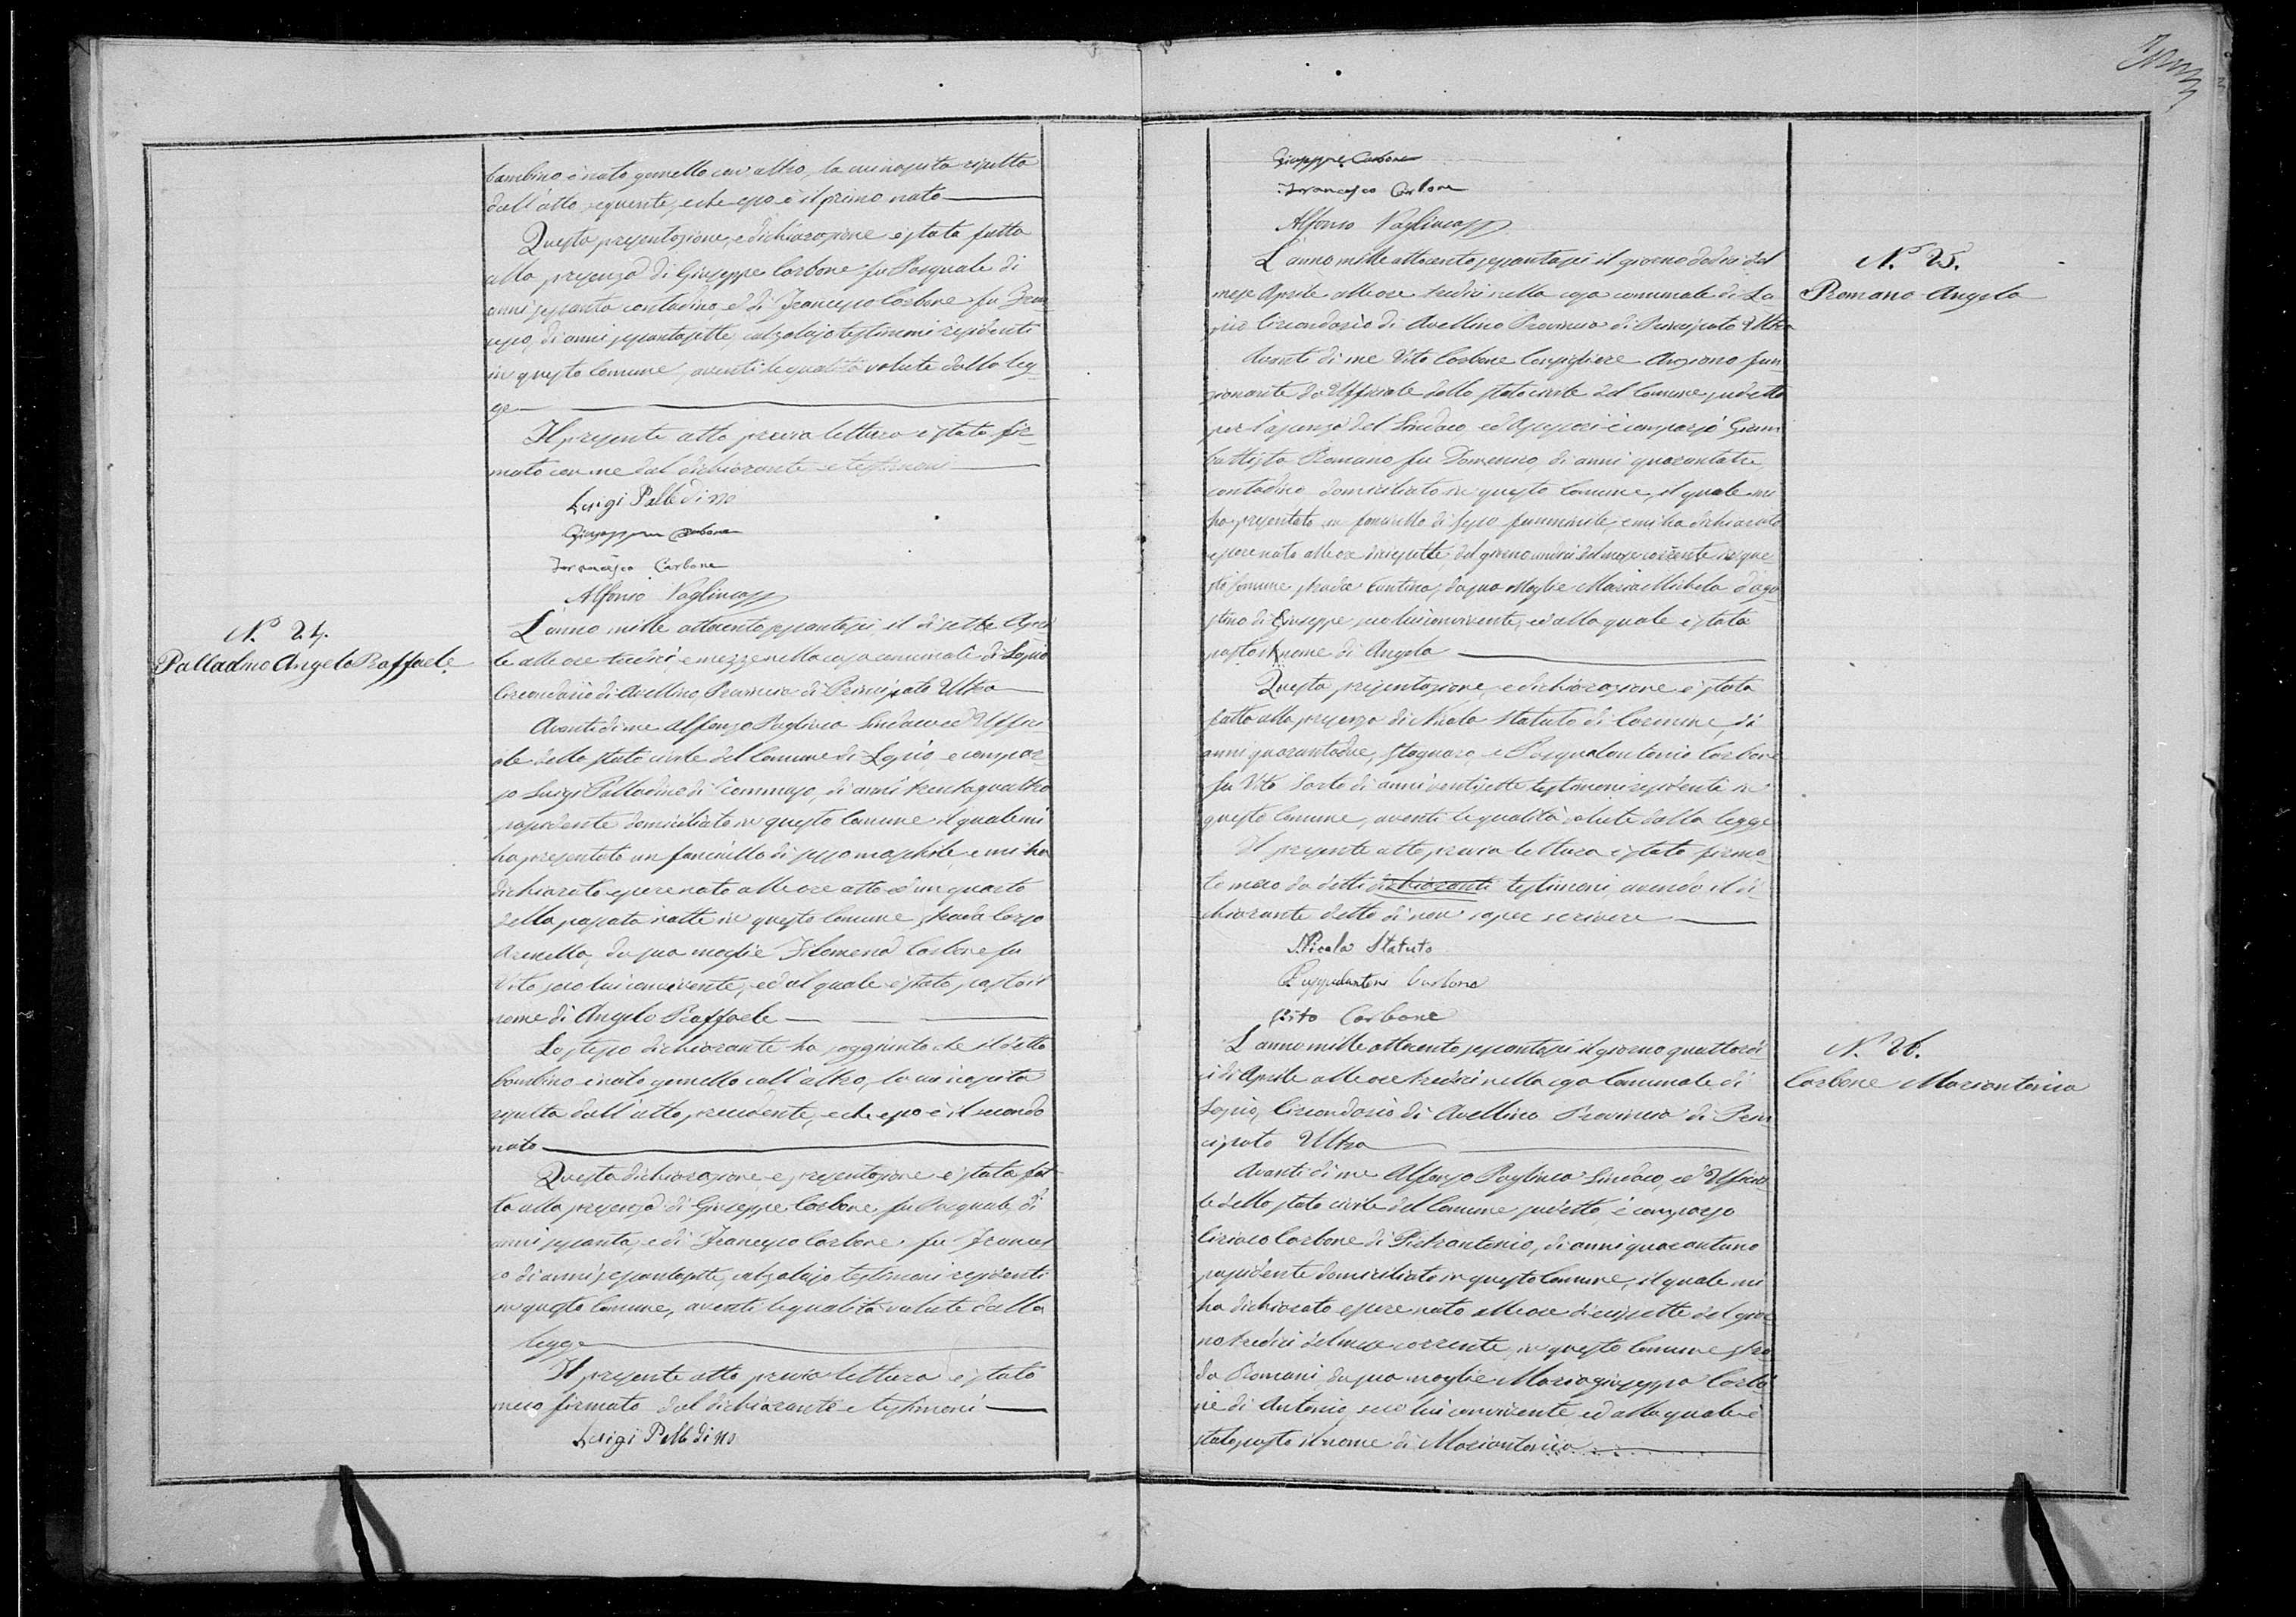 bambino è nato gemello con altro, la cui nascita risulta
dall'atto seguente, e che esso è il primo nato
Questa presentazione, e dichiarazione è stata fatta
alla presenza di Giuseppe Carbone fu Pasquale di
anni sessanta contadino, e di Francesco Carbone fu Fran-
cesco, di anni sessantasette, calzolajo testimoni residenti
in questo Comune, aventi le qualità volute dalla leg-
ge
Il presente atto previa lettura è stato fir-
mato con me dal dichiarante e testimoni
Luigi Palladino
Giuseppe Carbone
Francesco Carbone
Alfonso Pagliuca
N.º 24.
Palladino Angelo Raffaele
L'anno mille ottocento sessantasei, il dì sette Apri-
le alle ore tredici e mezze nella casa comunale di Lapio
Circondario di Avellino, Provincia di Principato Ultra
Avanti di me Alfonso Pagliuca Sindaco ed Uffici
ale dello stato civile del Comune di Lapio è compar-
so Luigi Palladino di Tommaso, di anni trentaquattro
possidente domiciliato in questo Comune il quale mi
ha presentato un fanciullo di sesso maschile, e mi ha
dichiarato essere nato alle ore otto ed un quarto
della passata notte in questo Comune, strada Corso
da sua moglie Filomena Carbone fu
Vito seco lui convivente, ed al quale è stato posto il
nome di Angelo Raffaele
Lo stesso dichiarante ha soggiunto che il detto
bambino è nato gemello coll'altro, la cui nascita
risulta dall'atto precedente, e che esso è il secondo
nato
Questa dichiarazione e presentazione è stata fat-
ta alla presenza di Giuseppe Carbone fu Pasquale, di
anni sessanta, e di Francesco Carbone fu Frances
co di anni sessantasette, calzolajo testimoni residenti
in questo Comune, aventi le qualità volute dalla
legge
Il presente atto previa lettura è stato
meco firmato dal dichiarante e testimoni
Luigi Palladino
Giuseppe Carbone
Francesco Carbone
Alfonso Pagliuca
N.º 25.
Romano Angela
L'anno mille ottocento sessantasei il giorno dodici del
mese Aprile alle ore tredici nella casa comunale di La
pio Circondario di Avellino Provincia di Principato Ultra
Avanti di me Vito Carbone Consigliere Anziano fun
zionante da Uffiziale dello stato civile del Comune sudetto
per l'assenza del Sindaco, ed Assessori è comparso Giam
battista Romano fu Domenico, di anni quarantatre
contadino domiciliato in questo Comune, il quale mi
ha presentato un fanciullo di sesso femminile, e mi ha dichiarato
essere nato alle ore diecisette del giorno undici del mese corrente in que
sto Comune strada Cantina, da sua Moglie Maria Michela d'Ago
stino di Giuseppe seco lui convivente, ed alla quale è stata
posto il nome di Angela
Questa presentazione, e dichiarazione è stata
fatta alla presenza di Nicola Statuto di Carmine, di
anni quarantadue, stagnaro, e Pasqualantonio Carbone
fu Vito Sarto di anni ventisette testimoni residenti in
questo Comune, aventi le qualità volute dalla legge
Il presente atto previa lettura è stato firma-
to meco da detti dichiaranti testimoni, avendo il di-
chiarante detto di non saper scrivere
Nicola Statuto
Pasqualantoni Carbone
Vito Carbone
N. 26.
Carbone Mariantonia
L'anno mille ottocento sessantasei il giorno quattordi-
ci di Aprile alle ore tredici nella casa Comunale di
Lapio, Circondario di Avellino Provincia di Prin
cipato Ultra
Avanti di me Alfonso Pagliuca Sindaco, ed Uffizia-
le dello stato civile del Comune sudetto, è comparso
Ciriaco Carbone di Pietrantonio, di anni quarantuno
possidente domiciliato in questo Comune, il quale mi
ha dichiarato essere nato alle ore diecisette del gior
no tredici del mese corrente, in questo Comune stra-
da Romani, da sua moglie Mariagiuseppa Carbo-
ne di Antonio seco lui convivente, ed alla quale è
stato posto il nome di Mariantonia